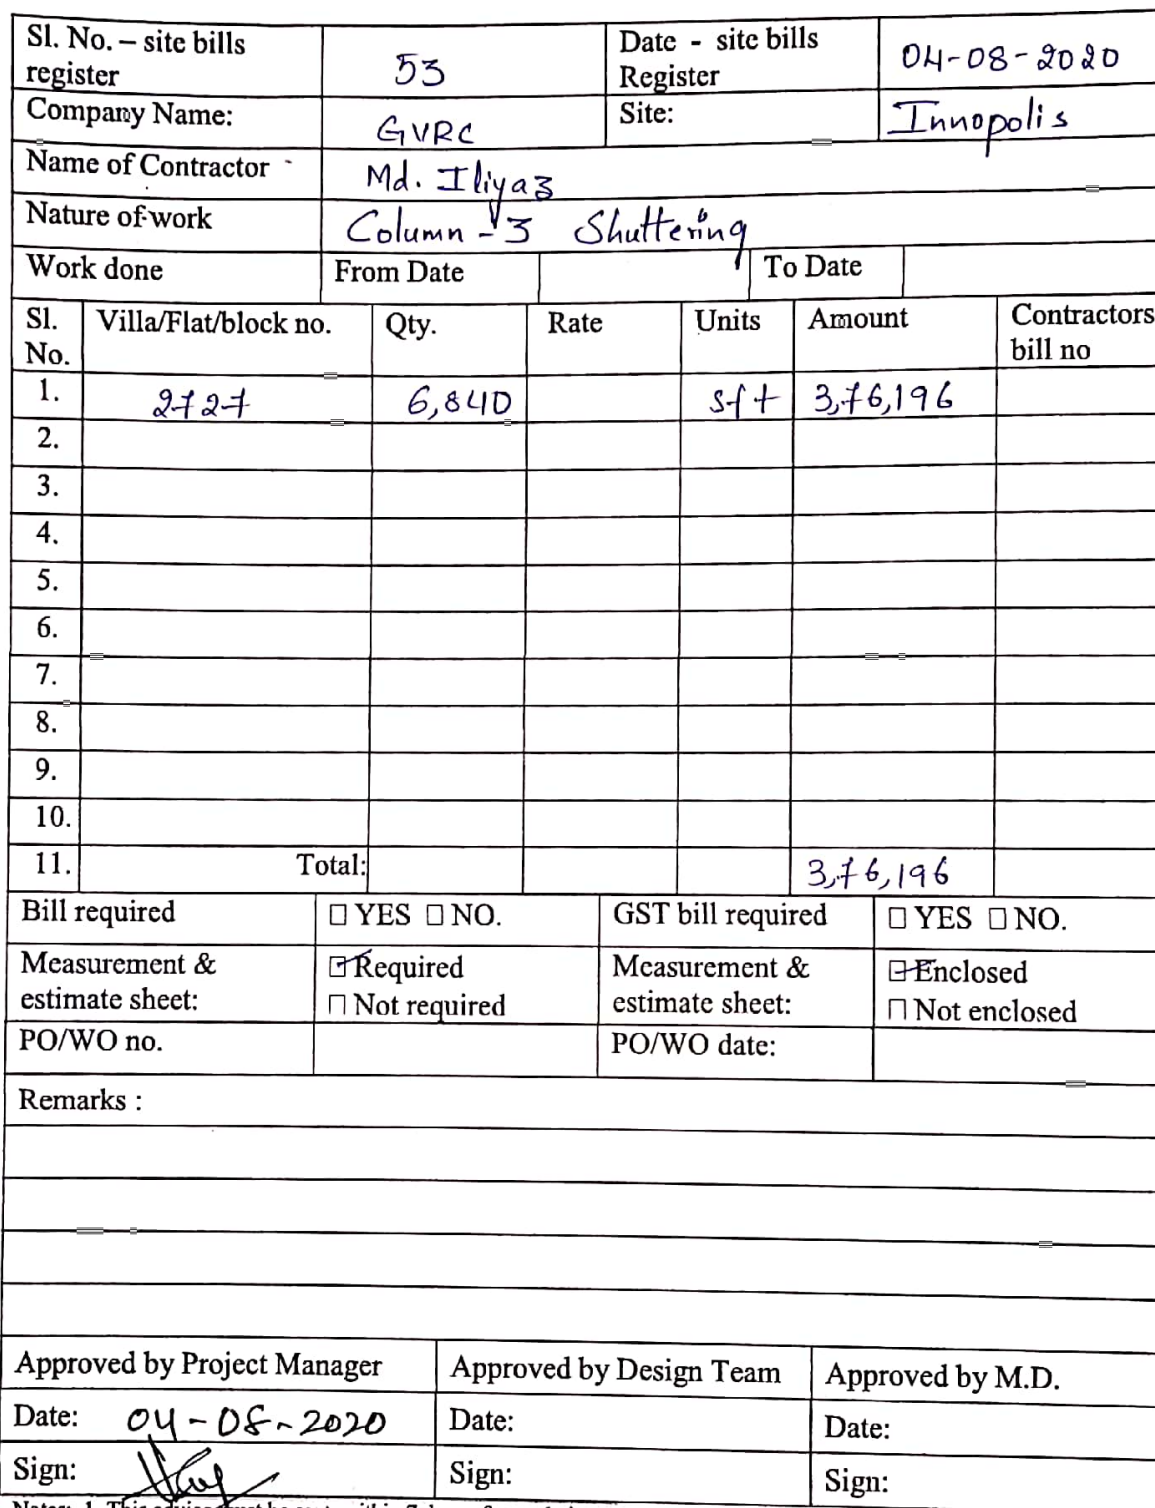 Sl. No. – site bills register 53 Date - site bills Register 04-08-2020
Company Name: GVRC Site: Innopolis
Name of Contractor Md. Iliyaz
Nature of work Column-3 Shuttering
Work done From Date To Date
Sl. No. Villa/Flat/block no. Qty. Rate Units Amount Contractors bill no
1. 2727 6,840 sft 3,76,196
2.
3.
4.
5.
6.
7.
8.
9.
10.
11. Total: 3,76,196
Bill required ☐ YES ☐ NO. GST bill required ☐ YES ☐ NO.
Measurement & estimate sheet: ☑ Required ☐ Not required Measurement & estimate sheet: ☑ Enclosed ☐ Not enclosed
PO/WO no. PO/WO date:
Remarks :
Approved by Project Manager Approved by Design Team Approved by M.D.
Date: 04-08-2020 Date: Date:
Sign: Sign: Sign: